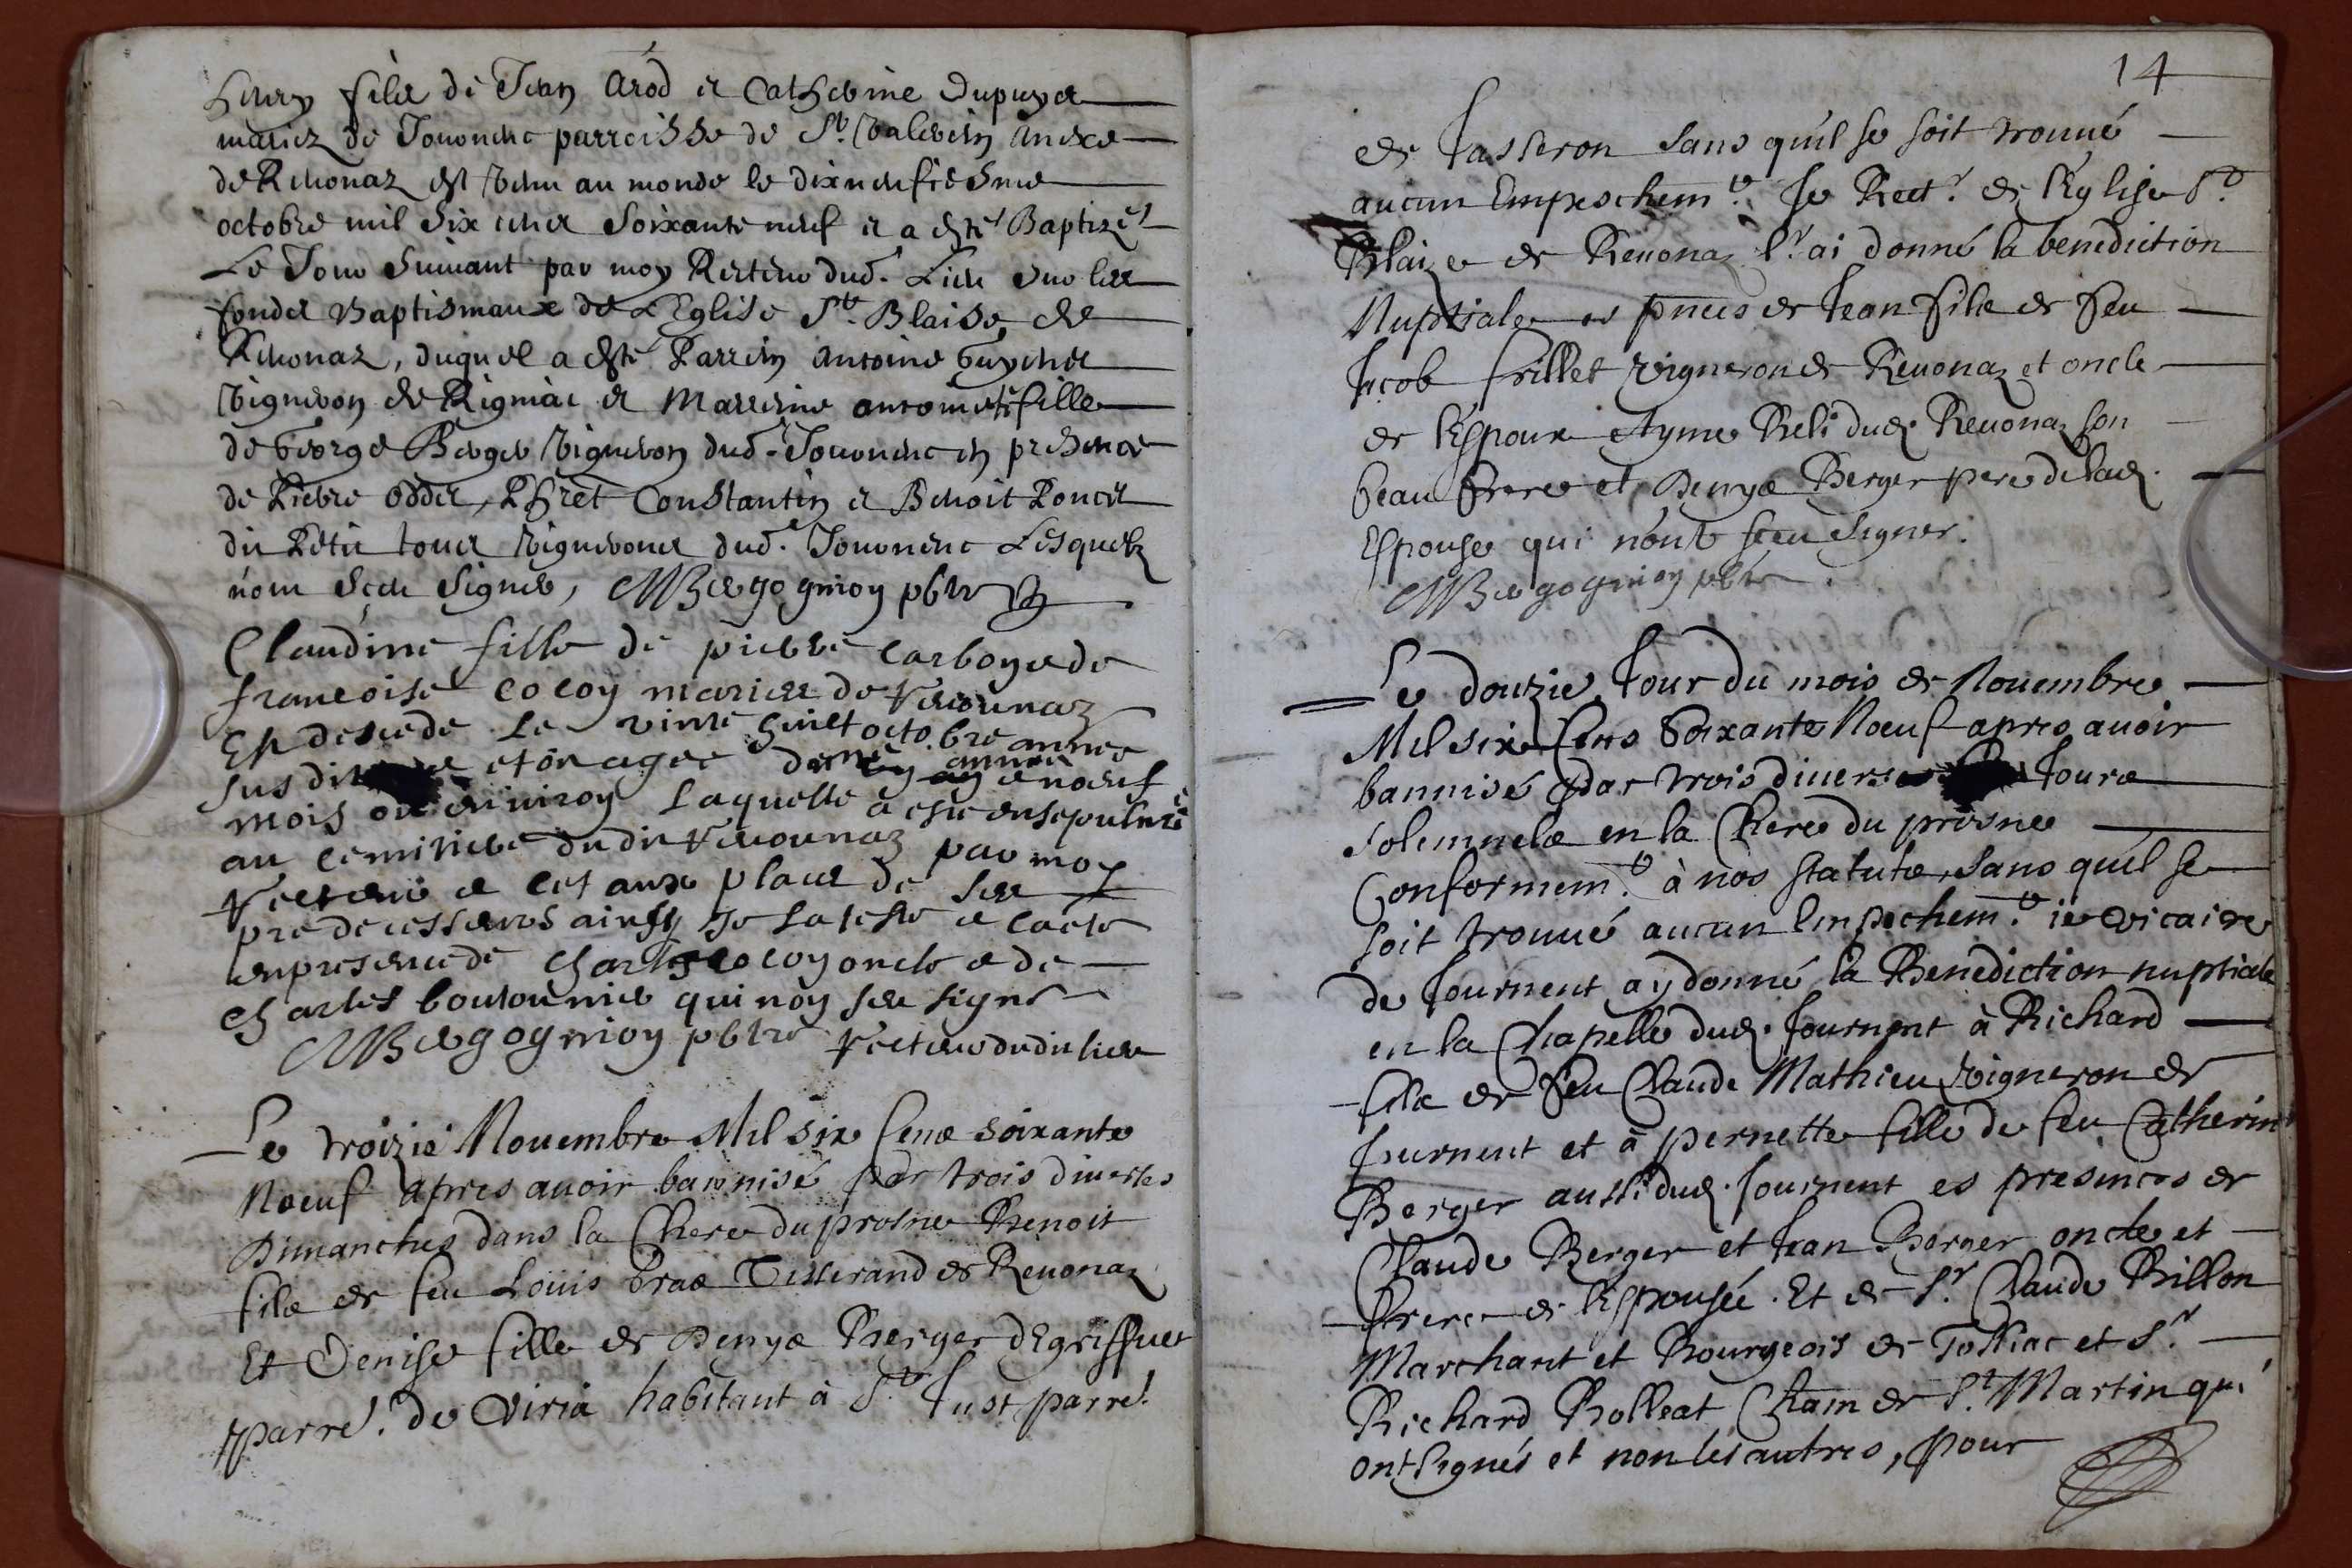 henry filz de Jean Arod et Catherine Dupuys
mariez de Jouonenc parroisse de St. Valerin Anexe
de Reuonaz est venu au monde le dixneufiesme
octobre mil six cens soixante neuf et a esté Baptizé
Le Jour suiuant par moy Recteur dud. Lieu sur les
fonds Baptismaux de L'Eglise St. Blaise de
Reuonaz, duquel a esté Parrein Antoine
vigneron de Rigniac et Marreine antoinete fille
de George Berger vigneron dud. Jouonenc en presence
de Pierre Oddet, Constantin et Benoit Poncet
dit Petit vignerons dud. Jouonenc Lesquelz
n'ont sçeu signer, MBergognion pbtre
Claudine fille de pierre Carboye de
francoise Cocoy mariez de Reuonnaz
Est desede Le vint huict octobre annee
sus dite et on agee de noeuf
mois ou enuiroy Laquelle a este ensepulture
au cemitiere dudit Reuonnaz par moy
recteur et cet aux place de ses
predecesseurs ainsy je lateste
enpresence de Charles Cocoy oncle e de
Charles boutounier qui noy seu signe
MBergognion pbtre recteur dudit lieu
Le troizie Nouembre Mil six Cens soixante
Noeuf apres auoir bannisé par trois diuerses
Dimanches dans la Chere du prosne Benoit
filz de feu Louis Tisserand de Reuonaz
Et Denise fille de Denys Berger d'Egriffuet
parre. de Viria habitant à St. Just parre.
14
de Jasseron sans qu'il se soit trouué
aucun Empeschemt. Je Rectr. de l'Eglise St.
Blaize de Reuonaz lr. ai donné la benediction
Nuptiale es pnces de Jean filz de feu
Jacob frillet vigneron de Reuonaz et oncle
de l'Espoux Ayme Beli dud. Reuonaz son
beau frere et Denys Berger pere de lad.
Espouse qui n'ont sceu signer.
MBergognion pbtre.
Le douzie Jour du mois de Nouembre
Mil six Cens Soixante Noeuf apres auoir
bannisé par trois diuers Jours
solemnels en la Chere du prosne
Conformemt. à nos statuts, sans qu'il se
soit trouué aucun Empechemt. ie vicaire
de Journent ay donné la Benediction nuptiale
en la Chapelle dud. Journent à Richard
filz de feu Claude Mathieu vigneron de
Journent et à pernette fille de feu Catherin
Berger aussi dud. Journent es presences de
Claude Berger et Jean Berger oncle et
frere de l'Espousée. Et de Sr. Claude Billon
Marchant et Bourgeois de Tossiac et Sr.
Richard Bolleat Cham de St. Martin qui
ont signés et non les autres, pour